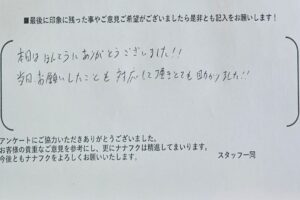 ■最後に印象に残った事やご意見ご希望がございましたら是非とも記入をお願いします！
本日はほんとうにありがとうございました!!
当日お願いしたことも対応して頂きとても助かりました!!
アンケートにご協力いただきありがとうございました。
お客様の貴重なご意見を参考にし、更にナナフクは精進してまいります。
今後ともナナフクをよろしくお願いいたします。
スタッフ一同